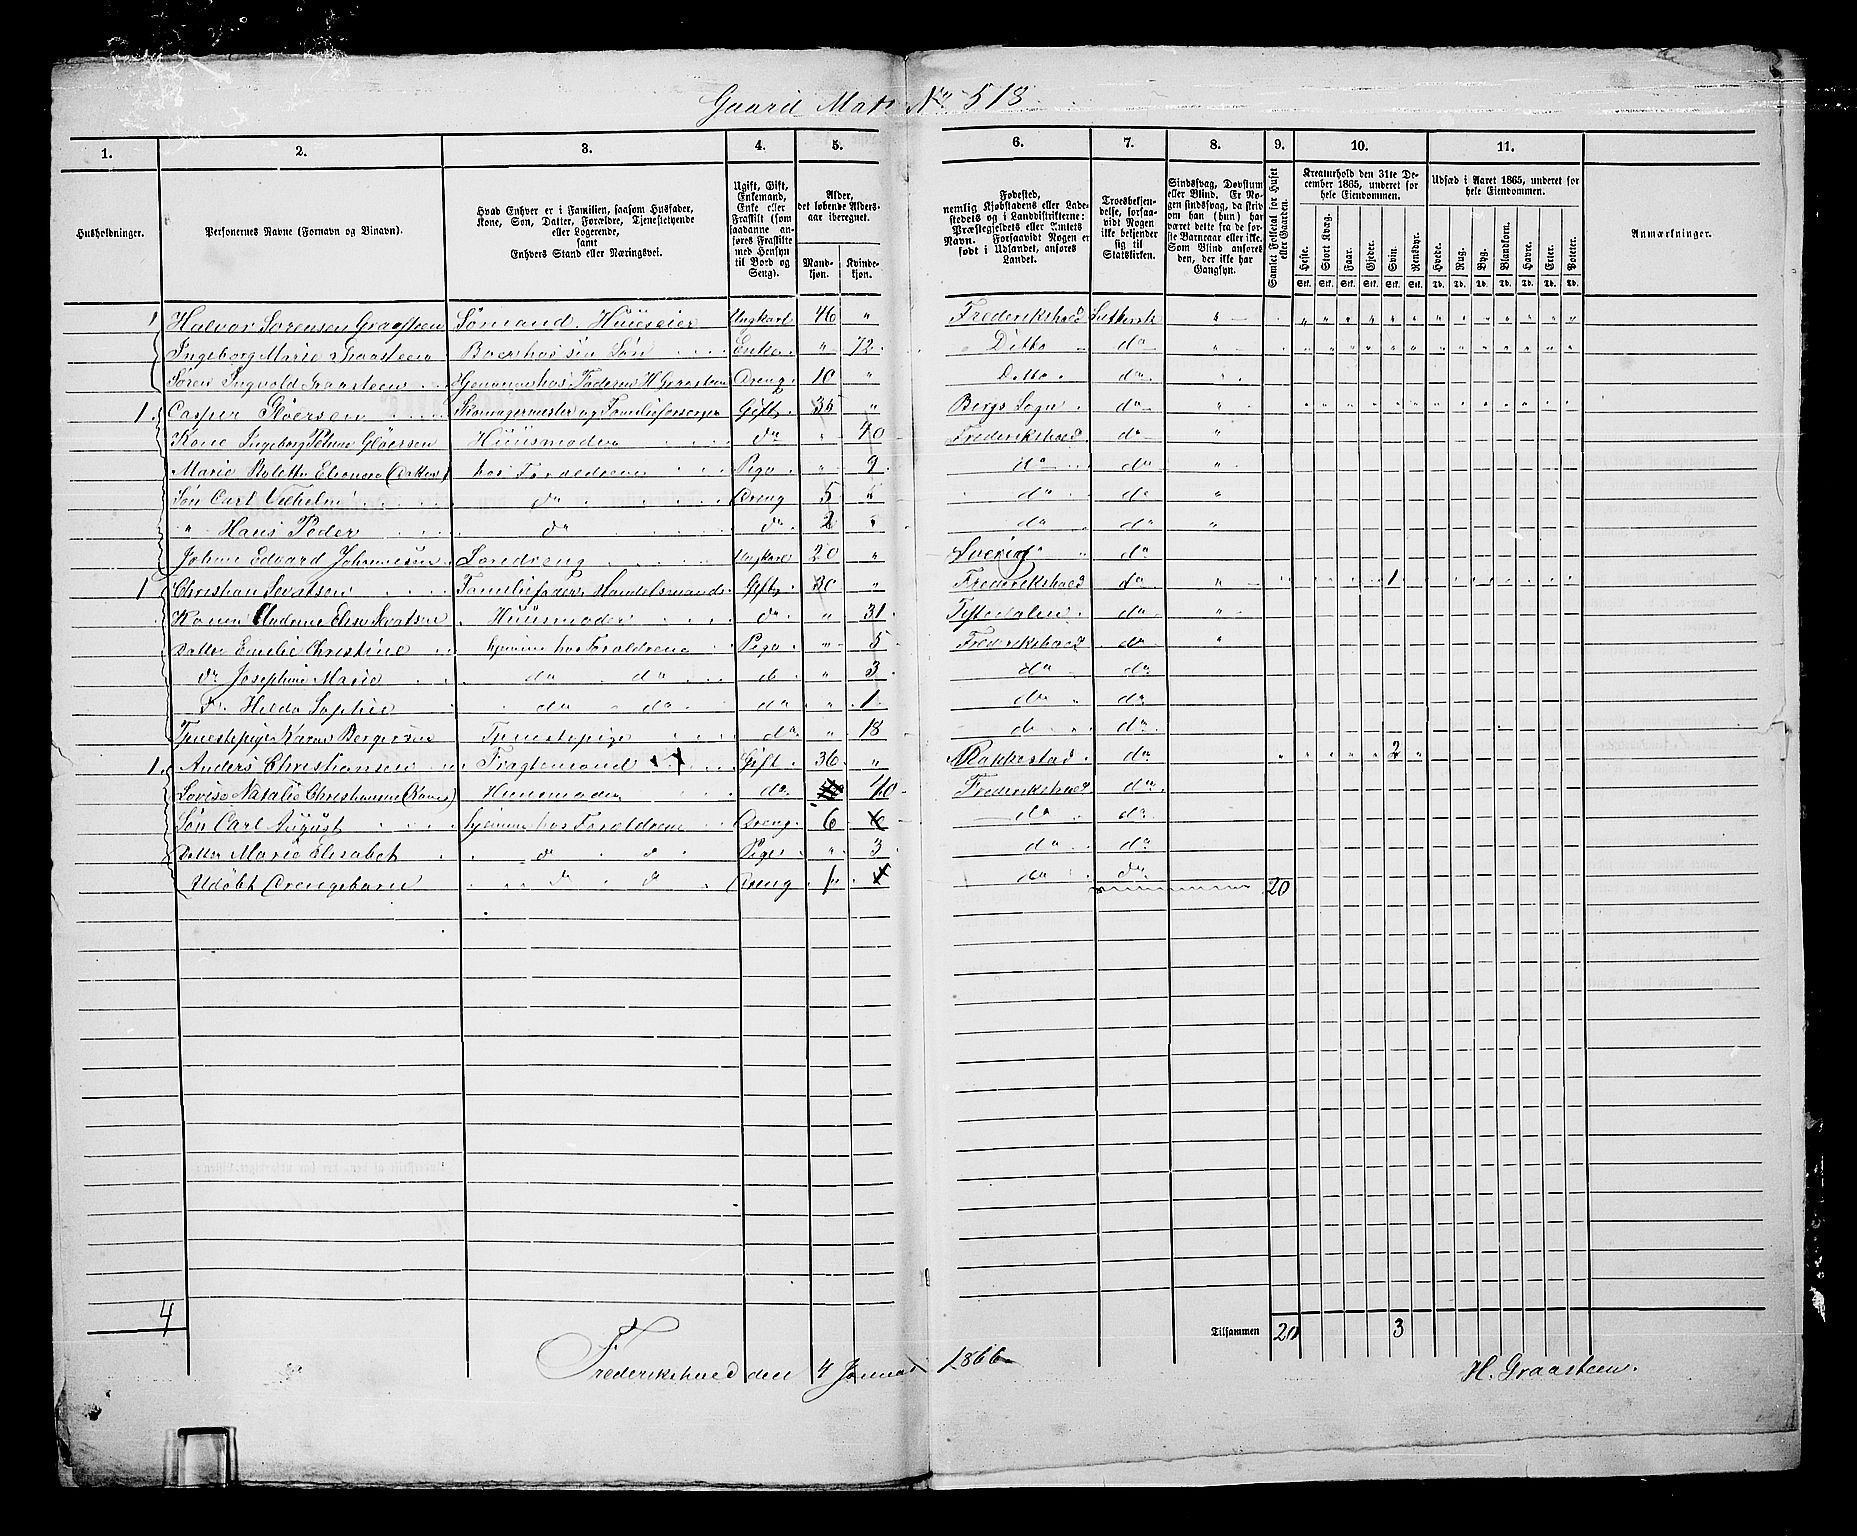 Gaard Matr No 518
1. 2. 3. 4. 5. 6. 7. 8. 9. 10. 11.
Husholdninger.
Personernes Navne (Fornavn og Binavn).
Hvad Enhver er i Familien, saasom Husfader, Kone, Søn, Datter, Forældre, Tjenestetyende eller Logerende, samt Enhvers Stand eller Næringsvei.
Ugift, Gift, Enkemand, Enke eller Fraskilt (som saadanne anføres Fraskilte med Hensyn til Bord og Seng).
Alder, det løbende Aldersaar iberegnet.
Mandkjøn. Kvindekjøn.
Fødested, nemlig Kjøbstadens eller Ladestedets og i Landdistrikterne: Præstegjeldets eller Amtets Navn. Forsaavidt Nogen er født i Udlandet, anføres Landet.
Troesbekjendelse, forsaavidt Nogen ikke bekjender sig til Statskirken.
Sindssvag, Døvstum eller Blind. Er Nogen sindssvag, da skrives om han (hun) har været dette fra de første Barneaar eller ikke. Som Blind anføres den, der ikke har Gangsyn.
Samlet Folketal for Huset eller Gaarden.
Kreaturhold den 31te December 1865, underet for hele Eiendommen.
Heste. Stort Kvæg. Faar. Gjeder. Svin. Rensdyr.
Stk. Stk. Stk. Stk. Stk. Stk.
Udsæd i Aaret 1865, underet for hele Eiendommen.
Hvede. Rug. Byg. Blandkorn. Havre. Erter. Poteter.
Td. Td. Td. Td. Td. Td. Td.
Anmærkninger.
1 Halvor Sørensen Graasteen Sømand. Huuseier Ungkarl 46 " Frederikshald Luthersk " " " " " " " " " " " " " "
Ingeborg Marie Graasteen Boer hos sin Søn Enke " 72 Ditto do " " " " " " " " " " " " " "
Søren Ingvold Graasteen Hjemme hos Faderen H Graasteen Dreng 10 " Ditto do " " " " " " " " " " " " " "
1 Casper Gløersen Skomagermester og Familieforsørger Gift 35 " Bergs Sogn do " " " " " " " " " " " " " "
Kone Ingeborg Petrine Gløersen Huusmoder do " 40 Frederikshald do "
Marie Bolette Eleonora (Datter) hos Forældrene Pige " 9 do do "
Søn Carl Vilhelm do Dreng 5 " do do "
" Hans Peder do do 2 " do do "
Johan Edvard Johannesen Læredreng Ungkarl 20 " Sverig do
1 Christian Sevatsen Familiefader. Handelsmand Gift 30 " Frederikshald do " " " " " 1 " " " " " " " "
Konen Andrine Elise Sevatsen Huusmoder do " 31 Tistedalen do "
Datter Emilie Christine hjemme hos Forældrene Pige " 5 Frederikshald do "
do Josephine Marie do do do " 3 do do
do Hilda Sophie do do do " 1 do do
Tjenestepige Karen Bergersen Tjenestepige do " 18 do do
1 Anders Christiansen Fragtemand Gift 36 " Rakkestad do " " " " " 2 "
Lovise Natalie Christiansen (Kone) Huusmoder do 40 Frederikshald do
Søn Carl August hjemme hos Forældrene Dreng 6 do do
Datter Marie Elisabet do do Pige " 3 do do
Udøbt Drengebarn do do Dreng 1 do do 20
4 Tilsammen 20 3
Frederikshald den 4 Januar 1866 H. Graasteen.